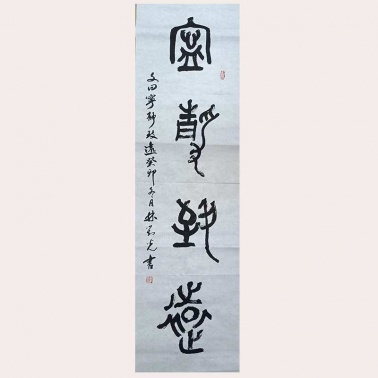 寧靜致遠
文曰寧靜致遠癸卯冬月林
光書